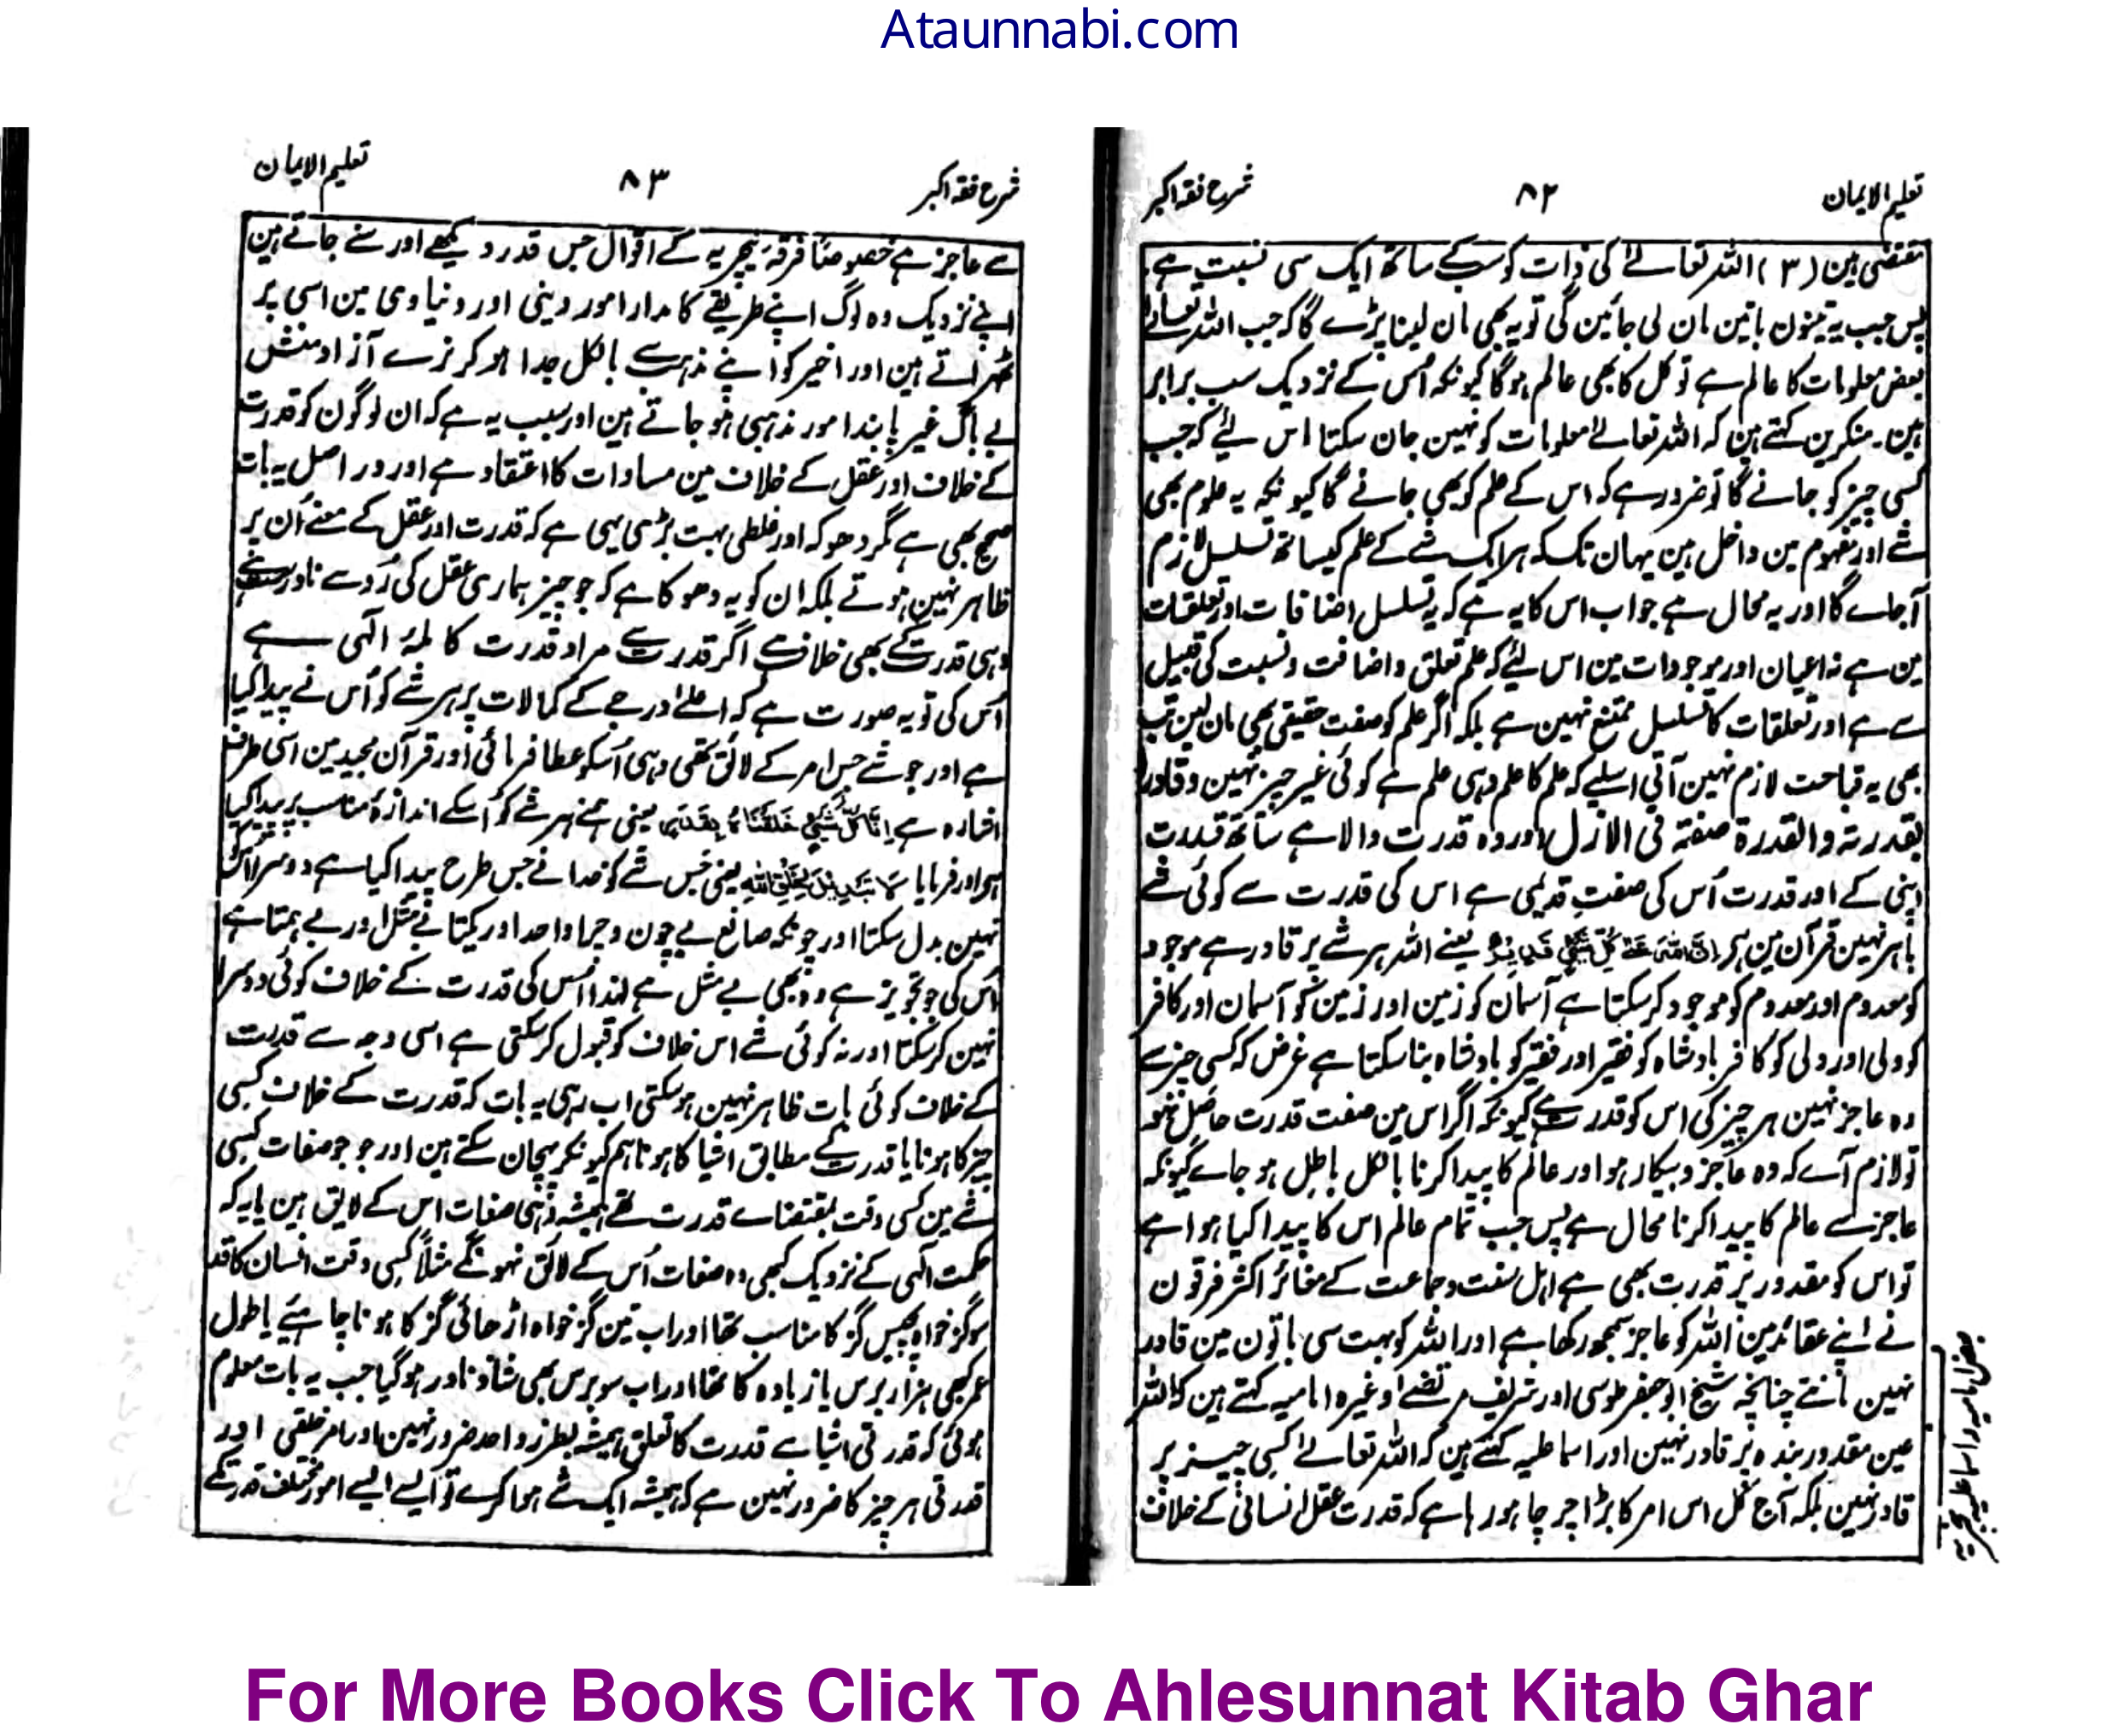 Ataunnabi.com
تعلیم الایمان ۸۲ شرح فقہ اکبر
مقتضی ہین (۳) اللہ تعالےٰ کی ذات کو سبکے ساتھ ایک سی نسبت ہے
پس جب یہ تینون باتین مان لی جائین گی تو یہ بھی مان لینا پڑے گا کہ جب اللہ تعالےٰ
بعض معلومات کا عالم ہے تو کل کا بھی عالم ہوگا کیونکہ اُس کے نزدیک سب برابر
ہین۔ منکرین کہتے ہین کہ اللہ تعالےٰ معلومات کو نہین جان سکتا اس لیے کہ جب
کسی چیز کو جانے گا تو ضرور ہے کہ اس کے علم کو بھی جانے گا کیونکہ یہ علوم بھی
شے اور مفہوم مین داخل ہین یہان تک کہ ہر ایک شے کے علم کیساتھ تسلسل لازم
آجاے گا اور یہ محال ہے جواب اس کا یہ ہے کہ یہ تسلسل اضافات اور تعلقات
مین ہے نہ اعیان اور موجودات مین اس لیے کہ علم تعلق و اضافت و نسبت کی قبیل
سے ہے اور تعلقات کا تسلسل ممتنع نہین ہے بلکہ اگر علم کو صفت حقیقی بھی مان لین تب
بھی یہ قباحت لازم نہین آتی اسلیے کہ علم کا علم وہی علم ہے کوئی غیر چیز نہین و قادرا
بقدرتہ والقدرۃ صفتہ فی الازل اور وہ قدرت والا ہے ساتھ قدرت
اپنی کے اور قدرت اُس کی صفتِ قدیمی ہے اس کی قدرت سے کوئی شے
باہر نہین قرآن مین ہی اِنَّ اللّٰهَ عَلٰی كُلِّ شَیْءٍ قَدِیْرٌ یعنے اللہ ہر شے پر قادر ہے موجود
کو معدوم اور معدوم کو موجود کر سکتا ہے آسمان کو زمین اور زمین کو آسمان اور کافر
کو ولی اور ولی کو کافر بادشاہ کو فقیر اور فقیر کو بادشاہ بنا سکتا ہے غرض کہ کسی چیز سے
وہ عاجز نہین ہر چیز کی اس کو قدرت ہے کیونکہ اگر اس مین صفت قدرت حاصل نہو
تو لازم آے کہ وہ عاجز و بیکار ہو اور عالم کا پیدا کرنا بالکل باطل ہو جاے کیونکہ
عاجز سے عالم کا پیدا کرنا محال ہے پس جب تمام عالم اس کا پیدا کیا ہوا ہے
تو اس کو مقدور پر قدرت بھی ہے اہل سنت و جماعت کے مغائر اکثر فرقون
نے اپنے عقائد مین اللہ کو عاجز سمجھ رکھا ہے اور اللہ کو بہت سی باتون مین قادر
نہین مانتے چنانچہ شیخ ابو جعفر طوسی اور شریف مرتضےٰ وغیرہ امامیہ کہتے ہین کہ اللہ
عین مقدور بندہ پر قادر نہین اور اسماعلیہ کہتے ہین کہ اللہ تعالےٰ کسی چیز پر
قادر نہین بلکہ آج کل اس امر کا بڑا چرچا ہو رہا ہے کہ قدرت عقل انسانی کے خلاف
تعلیم الایمان ۸۳ شرح فقہ اکبر
سے عاجز ہے خصوصًا فرقہ نیچریہ کے اقوال جس قدر دیکھے اور سنے جاتے ہین
اپنے نزدیک وہ لوگ اپنے طریقے کا مدار امور دینی اور دنیاوی مین اسی پر
ٹھہراتے ہین اور اخیر کو اپنے مذہب سے بالکل جدا ہو کر نرے آزاد منش
بے باک غیر پابند امور مذہبی ہو جاتے ہین اور سبب یہ ہے کہ ان لوگون کو قدرت
کے خلاف اور عقل کے خلاف مین مساوات کا اعتقاد ہے اور در اصل یہ بات
صحیح بھی ہے مگر دھوکہ اور غلطی بہت بڑی یہی ہے کہ قدرت اور عقل کے معنے اُن پر
ظاہر نہین ہوتے بلکہ ان کو یہ دھوکا ہے کہ جو چیز ہماری عقل کی رُو سے نادرست ہے
وہی قدرت کے بھی خلاف ہے اگر قدرت سے مراد قدرت کاملۂ الٰہی ہے
اُس کی تو یہ صورت ہے کہ اعلےٰ درجے کے کمالات پر ہر شے کو اُس نے پیدا کیا
ہے اور جو شے جس امر کے لائق تھی وہی اُسکو عطا فرمائی اور قرآن مجید مین اسی طرف
اشارہ ہے اِنَّا كُلَّ شَیْءٍ خَلَقْنَاهُ بِقَدَرٍ یعنی ہمنے ہر شے کو اُسکے اندازۂ مناسب پر پیدا کیا
ہی اور فرمایا لَا تَبْدِیْلَ لِخَلْقِ اللّٰهِ یعنی جس شے کو خدا نے جس طرح پیدا کیا ہے دوسرا اُسکو
نہین بدل سکتا اور چونکہ صانع بے چون و چرا واحد اور یکتا بے مثل اور بے ہمتا ہے
اُس کی جو تجویز ہے وہ بھی بے مثل ہے لہذا اُس کی قدرت کے خلاف کوئی دوسرا
نہین کر سکتا اور نہ کوئی شے اس خلاف کو قبول کر سکتی ہے اسی وجہ سے قدرت
کے خلاف کوئی بات ظاہر نہین ہو سکتی اب رہی یہ بات کہ قدرت کے خلاف کسی
چیز کا ہونا یا قدرت کے مطابق اشیا کا ہونا ہم کیونکر پہچان سکتے ہین اور جو جو صفات کسی
شے مین کسی وقت بمقتضاے قدرت تھے ہمیشہ وہی صفات اس کے لایق ہین یا یہ کہ
حکمت الٰہی کے نزدیک کبھی وہ صفات اُس کے لائق نہونگے مثلًا کسی وقت انسان کا قد
سو گز خواہ پچیس گز کا مناسب تھا اور اب تین گز خواہ اڑھائی گز کا ہونا چاہیے یا طول
عمر کبھی ہزار برس یا زیادہ کا تھا اور اب سو برس بھی شاذ و نادر ہو گیا جب یہ بات معلوم
ہوئی کہ قدرتی اشیا سے قدرت کا تعلق ہمیشہ بطرز واحد ضرور نہین اور امر خلقی اور
قدرتی ہر چیز کا ضرور نہین ہے کہ ہمیشہ ایک سے ہوا کرے تو ایسے ایسے امور مختلف قدرت کے
For More Books Click To Ahlesunnat Kitab Ghar